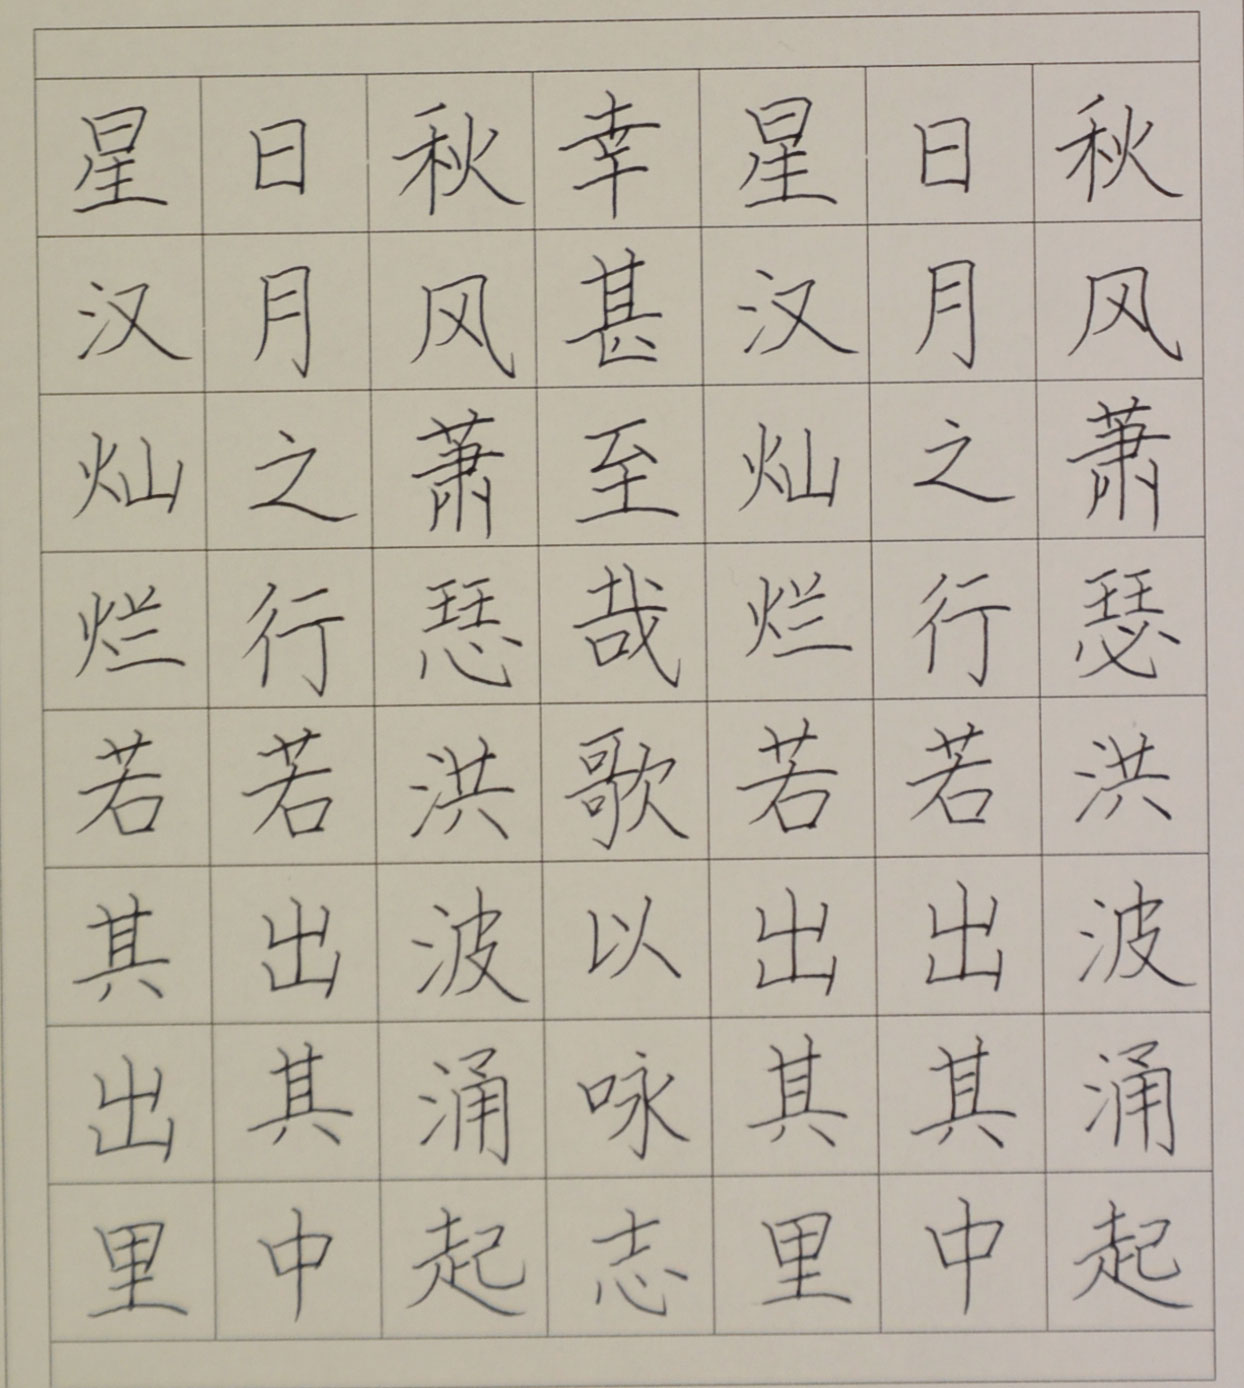 秋风萧瑟洪波涌起
日月之行若出其中
星汉灿烂若出其里
幸甚至哉歌以咏志
秋风萧瑟洪波涌起
日月之行若出其中
星汉灿烂若其出里